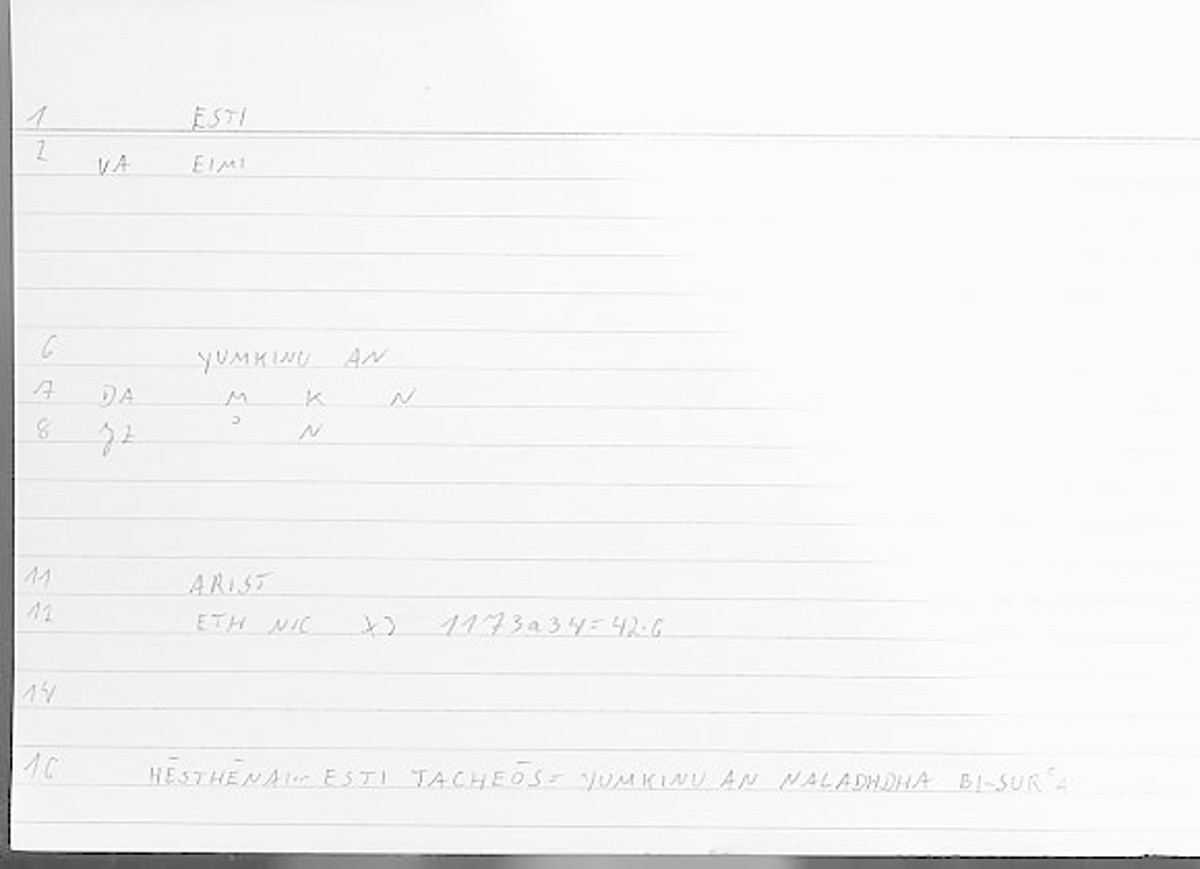 1 ESTI
2 VA EIMI
6 YUMKINU AN
7 DA M K N
8 ʾ N
11 ARIST
12 ETH NIC X) 1173a34=42.6
14
16 HĒSTHĒNAI~ ESTI TACHEŌS= YUMKINU AN NALADHDHA BI-SURʿA